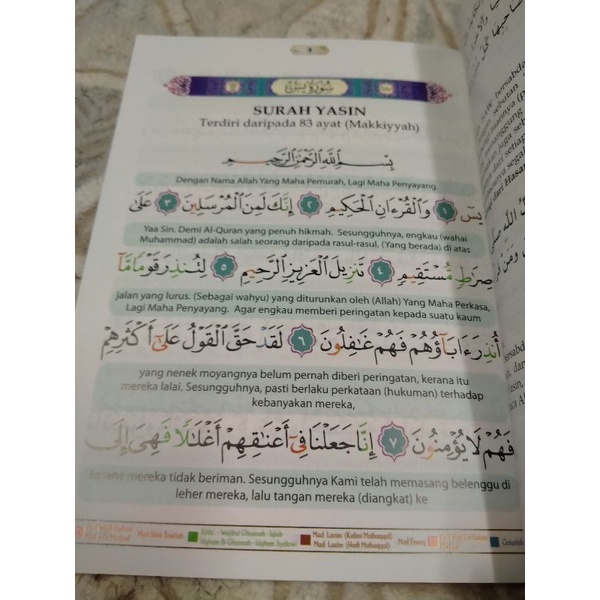 سورة يس
SURAH YASIN
Terdiri daripada 83 ayat (Makkiyyah)
بِسْمِ اللَّهِ الرَّحْمَٰنِ الرَّحِيمِ
Dengan Nama Allah Yang Maha Pemurah, Lagi Maha Penyayang.
يسٓ ١ وَالْقُرْءَانِ الْحَكِيمِ ٢ إِنَّكَ لَمِنَ الْمُرْسَلِينَ ٣ عَلَىٰ
Yaa Sin. Demi Al-Quran yang penuh hikmah. Sesungguhnya, engkau (wahai
Muhammad) adalah salah seorang daripada rasul-rasul. (Yang berada) di atas
صِرَٰطٍ مُّسْتَقِيمٍ ٤ تَنزِيلَ الْعَزِيزِ الرَّحِيمِ ٥ لِتُنذِرَ قَوْمًا مَّا
jalan yang lurus. (Sebagai wahyu) yang diturunkan oleh (Allah) Yang Maha Perkasa,
Lagi Maha Penyayang. Agar engkau memberi peringatan kepada suatu kaum
أُنذِرَ ءَابَآؤُهُمْ فَهُمْ غَٰفِلُونَ ٦ لَقَدْ حَقَّ الْقَوْلُ عَلَىٰٓ أَكْثَرِهِمْ
yang nenek moyangnya belum pernah diberi peringatan, kerana itu
mereka lalai. Sesungguhnya, pasti berlaku perkataan (hukuman) terhadap
kebanyakan mereka,
فَهُمْ لَا يُؤْمِنُونَ ٧ إِنَّا جَعَلْنَا فِىٓ أَعْنَٰقِهِمْ أَغْلَٰلًا فَهِىَ إِلَى
kerana mereka tidak beriman. Sesungguhnya Kami telah memasang belenggu di
leher mereka, lalu tangan mereka (diangkat) ke